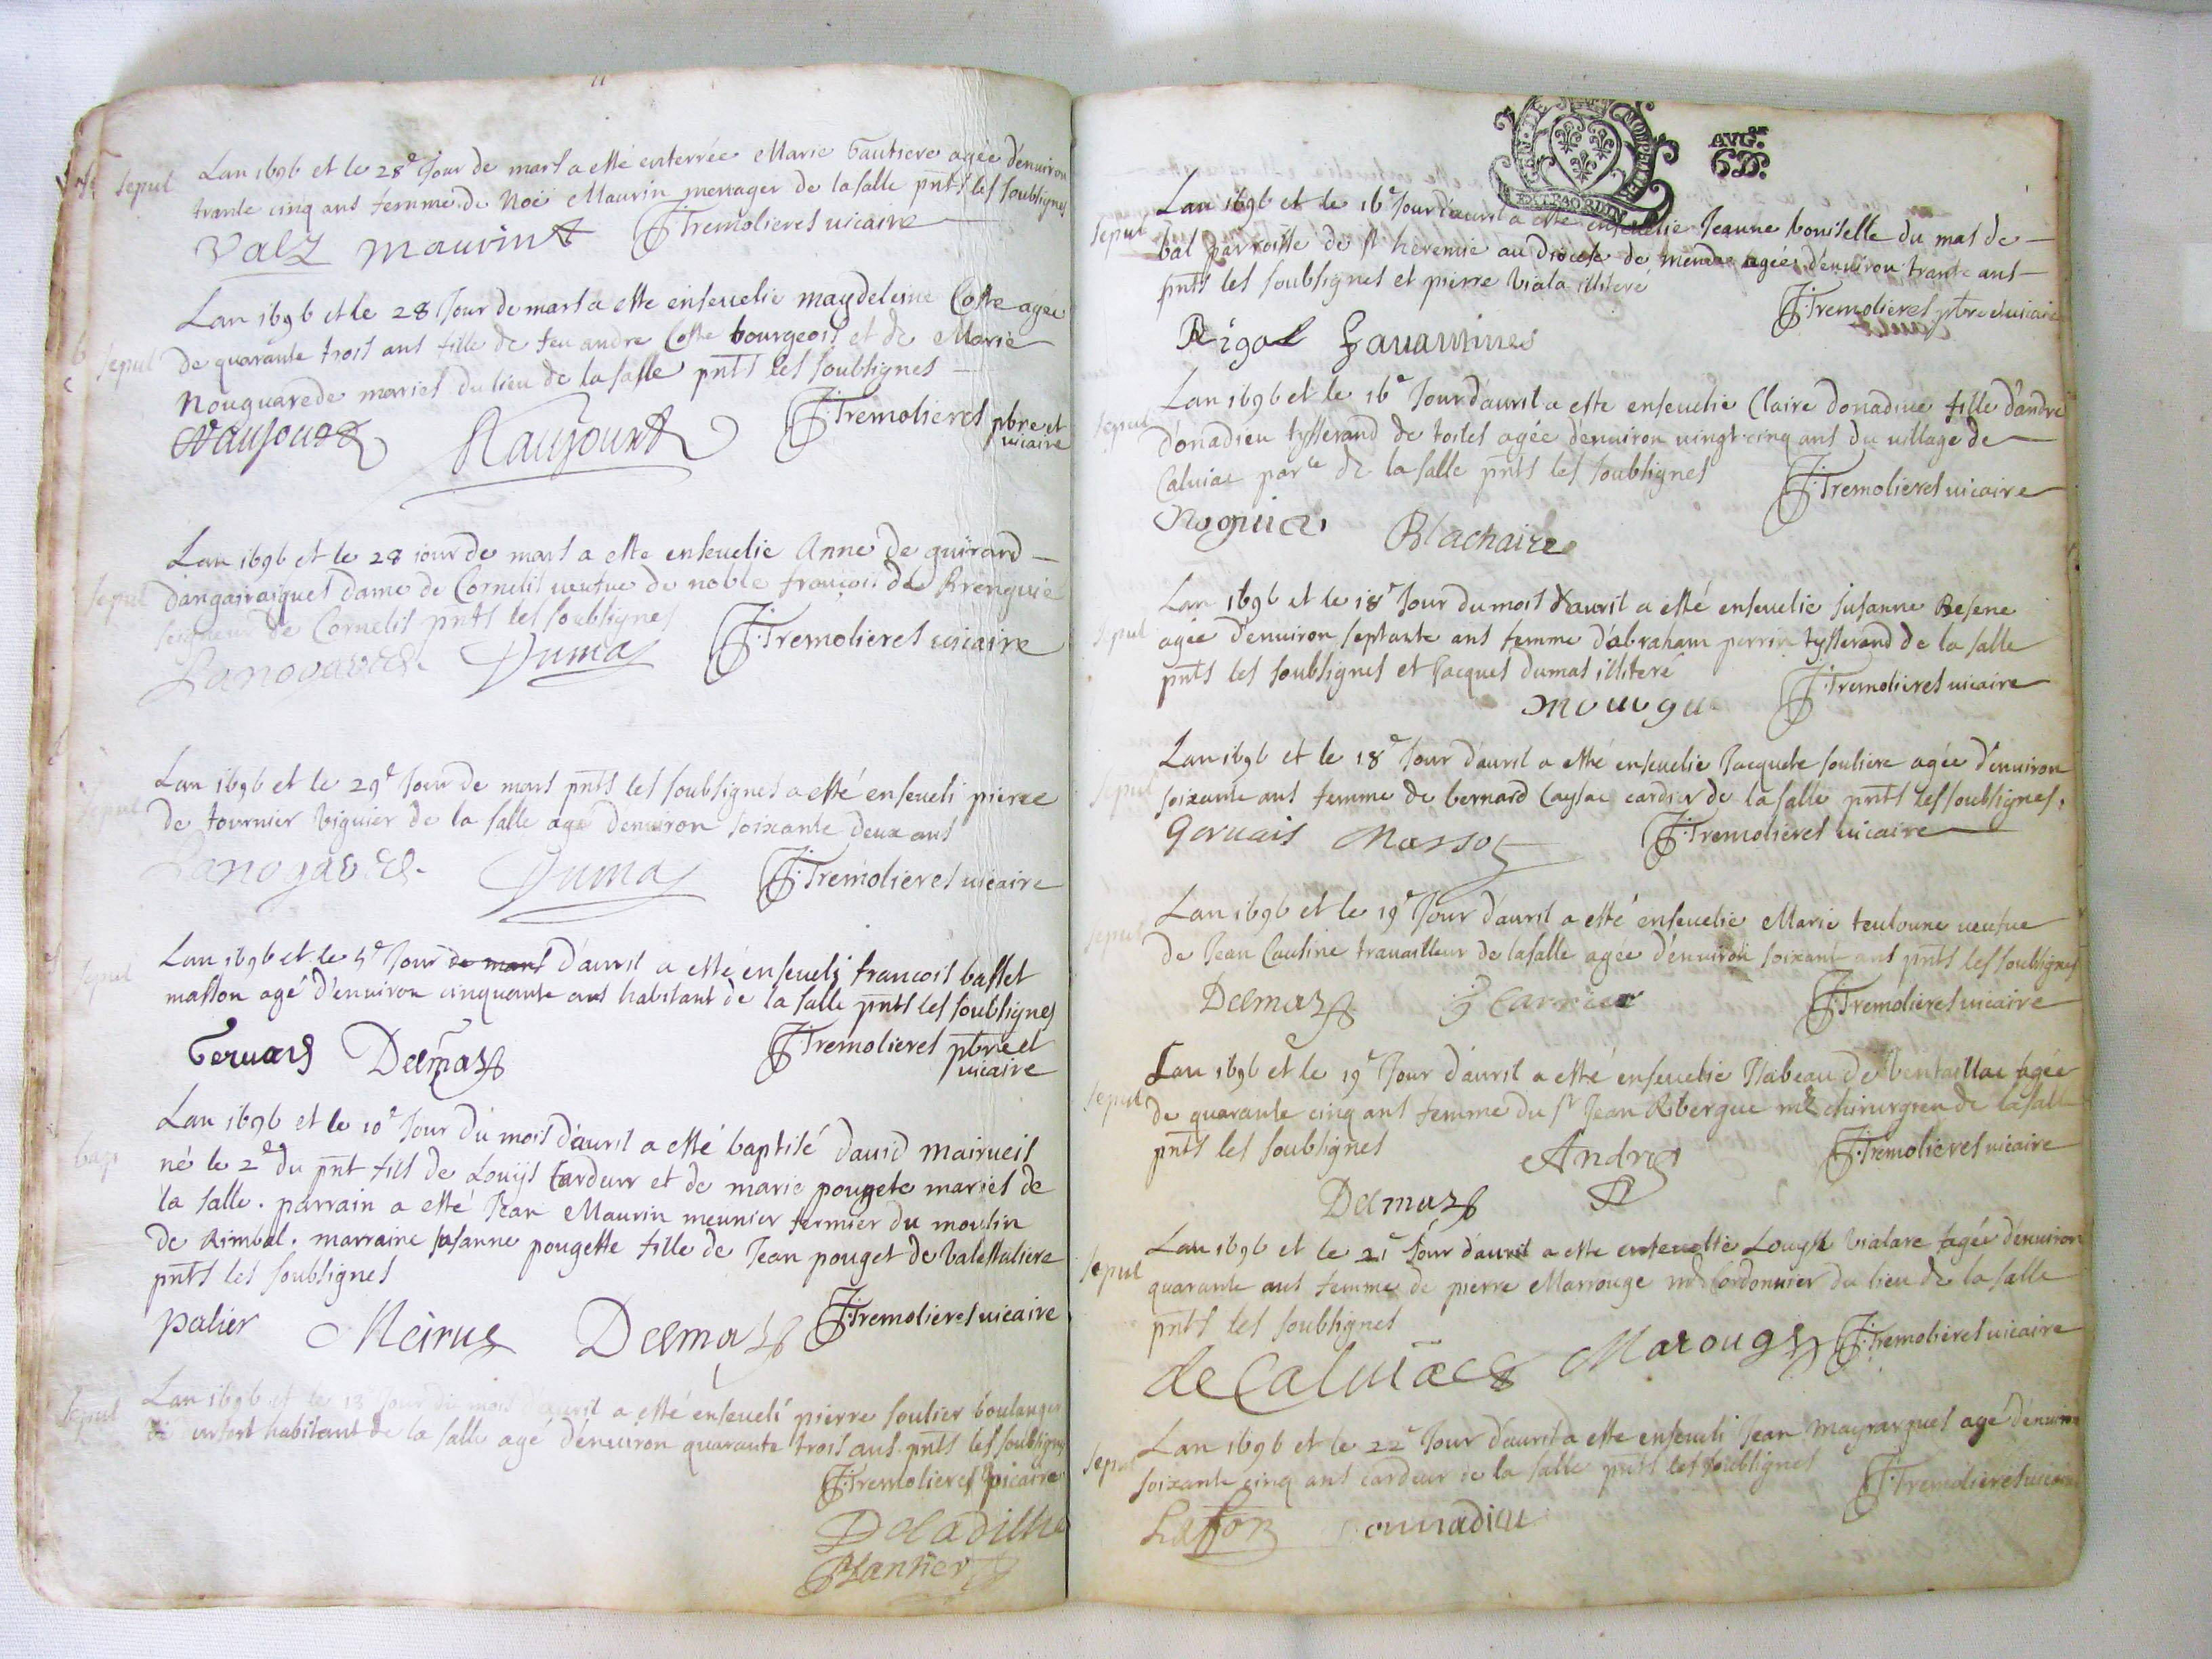 sepul
Lan 1696 et le 28e Jour de mars a esté enterrée Marie Gautiere agée d'enuiron
trante cinq ans femme de Noé Maurin menager de la salle pnts les soubsignes
Valz Maurin JTremolieres uicaire
sepul
Lan 1696 et le 28 Jour de mars a esté enseuelie magdeleine Coste agée
de quarante trois ans fille de feu andre Coste bourgeois et de Marie
Nouguarede mariés du lieu de la salle pnts les soubsignes
JTremolieres pbre et
uicaire
sepul
Lan 1696 et le 28 iour de mars a esté enseuelie Anne de guirard
dangairaigues dame de Cornelis ueufue de noble françois de
seigneur de Cornelis pnts les soubsignes
Lanogarede Dumas JTremolieres uicaire
sepul
Lan 1696 et le 29e Jour de mars pnts les soubsignes a esté enseueli pierre
de tournier Viguier de la salle agé denuiron soixante deux ans
Lanogarede Dumas JTremolieres uicaire
sepul
Lan 1696 et le 5e Jour de mars d'auril a esté enseueli francois basset
masson agé d'enuiron cinquante ans habitant de la salle pnts les soubsignes
Geruais Delmas JTremolieres pbre et
uicaire
bap
Lan 1696 et le 10e Jour du mois d'auril a esté baptisé dauid mairueis
né le 2e du pnt fils de Louijs Cardeur et de marie pougete mariés de
la salle. parrain a esté Jean Maurin meunier fermier du moulin
de Rimbal. marraine susanne pougette fille de Jean pouget de valestaliere
pnts les soubsignes
palier Meirue Delmas JTremolieres uicaire
sepul
Lan 1696 et le 13e Jour du mois d'auril a esté enseueli pierre soulier boulanger
de habitant de la salle agé d'enuiron quarante trois ans pnts les soubsignes
JTremolieres uicaire
Deladilhe
Blanner
EXTRAORDIN
AVGon
6D.
sepul
Lan 1696 et le 16e Jour dauril a esté enseuelie Jeanne bouiselle du mas de
bal parroisse de st heremie au diocese de mende agée d'enuiron trante ans
pnts les soubsignes et pierre Viala illiteré
JTremolieres pbre et uicaire
Rigal
sepul
Lan 1696 et le 16e Jour dauril a esté enseuelie Claire donadiue fille d'andre
donadieu tysserand de toiles agée d'enuiron uingt cinq ans du uillage de
Caluiac parce de la salle pnts les soubsignes
JTremolieres uicaire
Noguier Blachaire
sepul
Lan 1696 et le 18e Jour du mois d'auril a esté enseuelie susanne Besene
agée d'enuiron septante ans femme d'abraham perrin tysserand de la salle
pnts les soubsignes et Jacques dumas illiteré
mourgue JTremolieres uicaire
sepul
Lan 1696 et le 18e Jour d'auril a esté enseuelie Jacquete souliere agée d'enuiron
soixante ans femme de bernard Caysac cardeur de la salle pnts les soubsignes.
Geruais Massot JTremolieres uicaire
sepul
Lan 1696 et le 19e Jour d'auril a esté enseuelie Marie teuloune ueufue
de Jean Causine trauailleur de la salle agée d'enuiron soixante ans pnts les soubsignes
Delmas J Carrier JTremolieres uicaire
sepul
Lan 1696 et le 19e Jour d'auril a esté enseuelie Isabeau de Ventaillac agée
de quarante cinq ans femme du sr Jean Ribergue me chirurgien de la salle
pnts les soubsignes
Andre JTremolieres uicaire
Delmas
sepul
Lan 1696 et le 21e Jour d'auril a esté enseuelie Louyse Vialare agée d'enuiron
quarante ans femme de pierre Marrouge md Cordonnier du lieu de la salle
pnts les soubsignes
de Caluiac Marouge JTremolieres uicaire
sepul
Lan 1696 et le 22e Jour d'auril a esté enseueli Jean Mayrargues agé d'enuiron
soixante cinq ans cardeur de la salle pnts les soubsignes
JTremolieres uicaire
Lafon Donnadieu